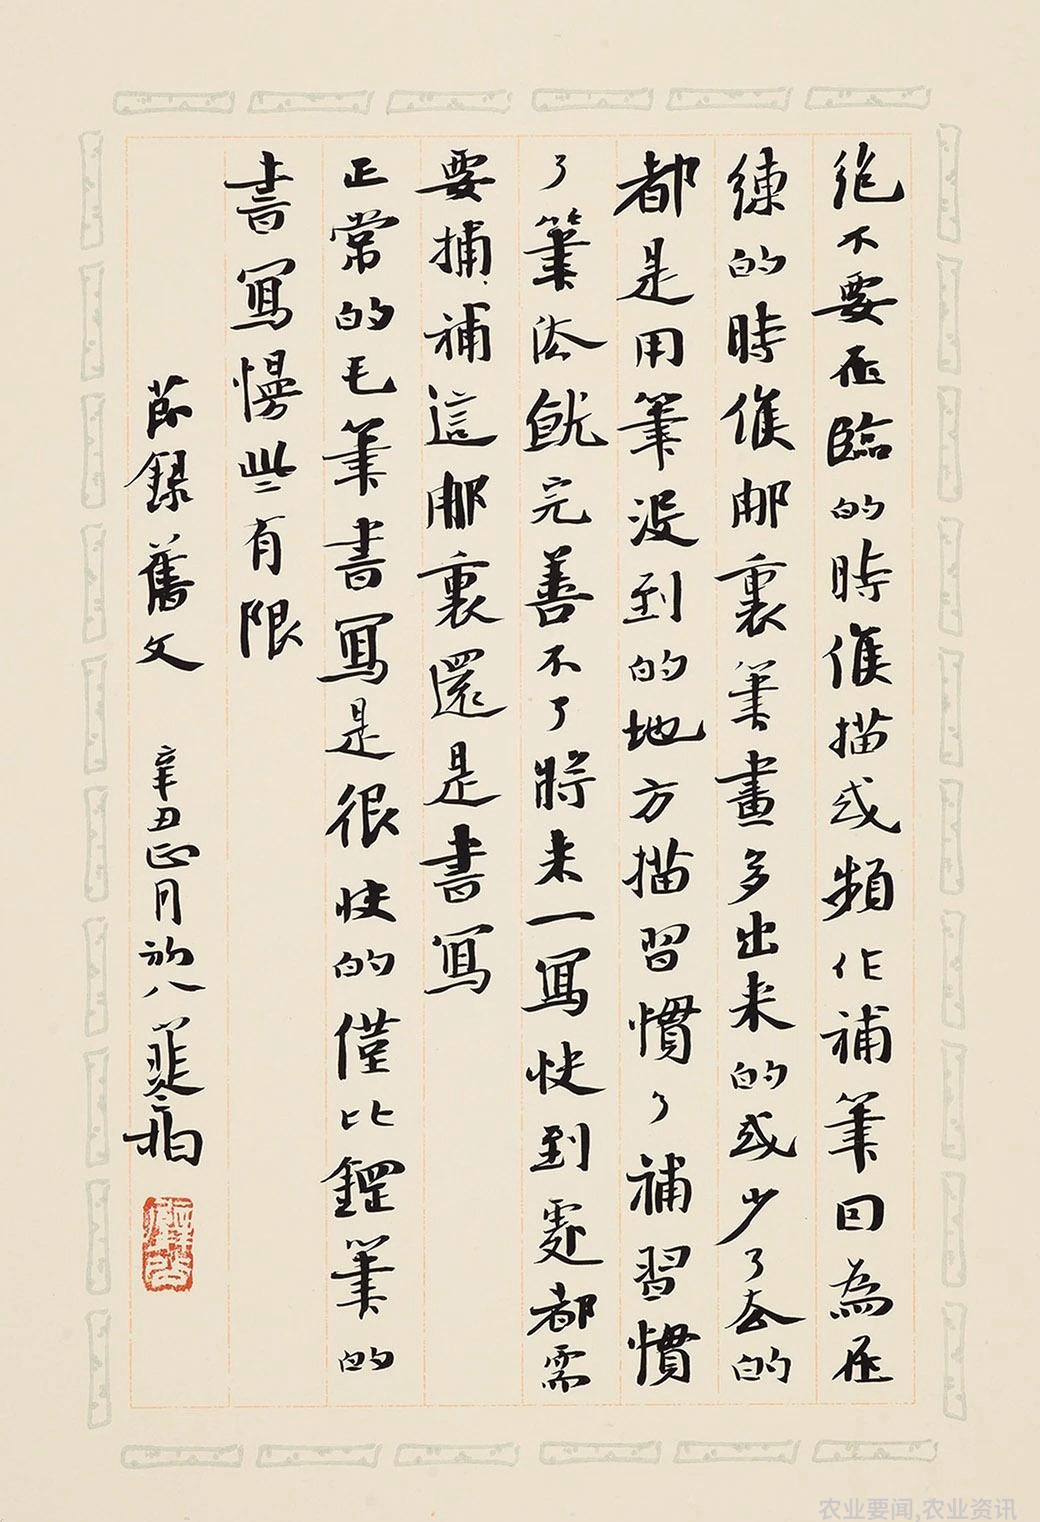 絕不要在臨的時候描或頻作補筆因為在
練的時候那裏筆畫多出來的或少了去的
都是用筆没到的地方描習慣了補習慣
了筆法就完善不了將來一寫快到處都需
要捕補這那裏還是書寫
正常的毛筆書寫是很快的僅比鋼筆的
書寫慢些有限
節録舊文 辛丑正月初八
农业要闻,农业资讯